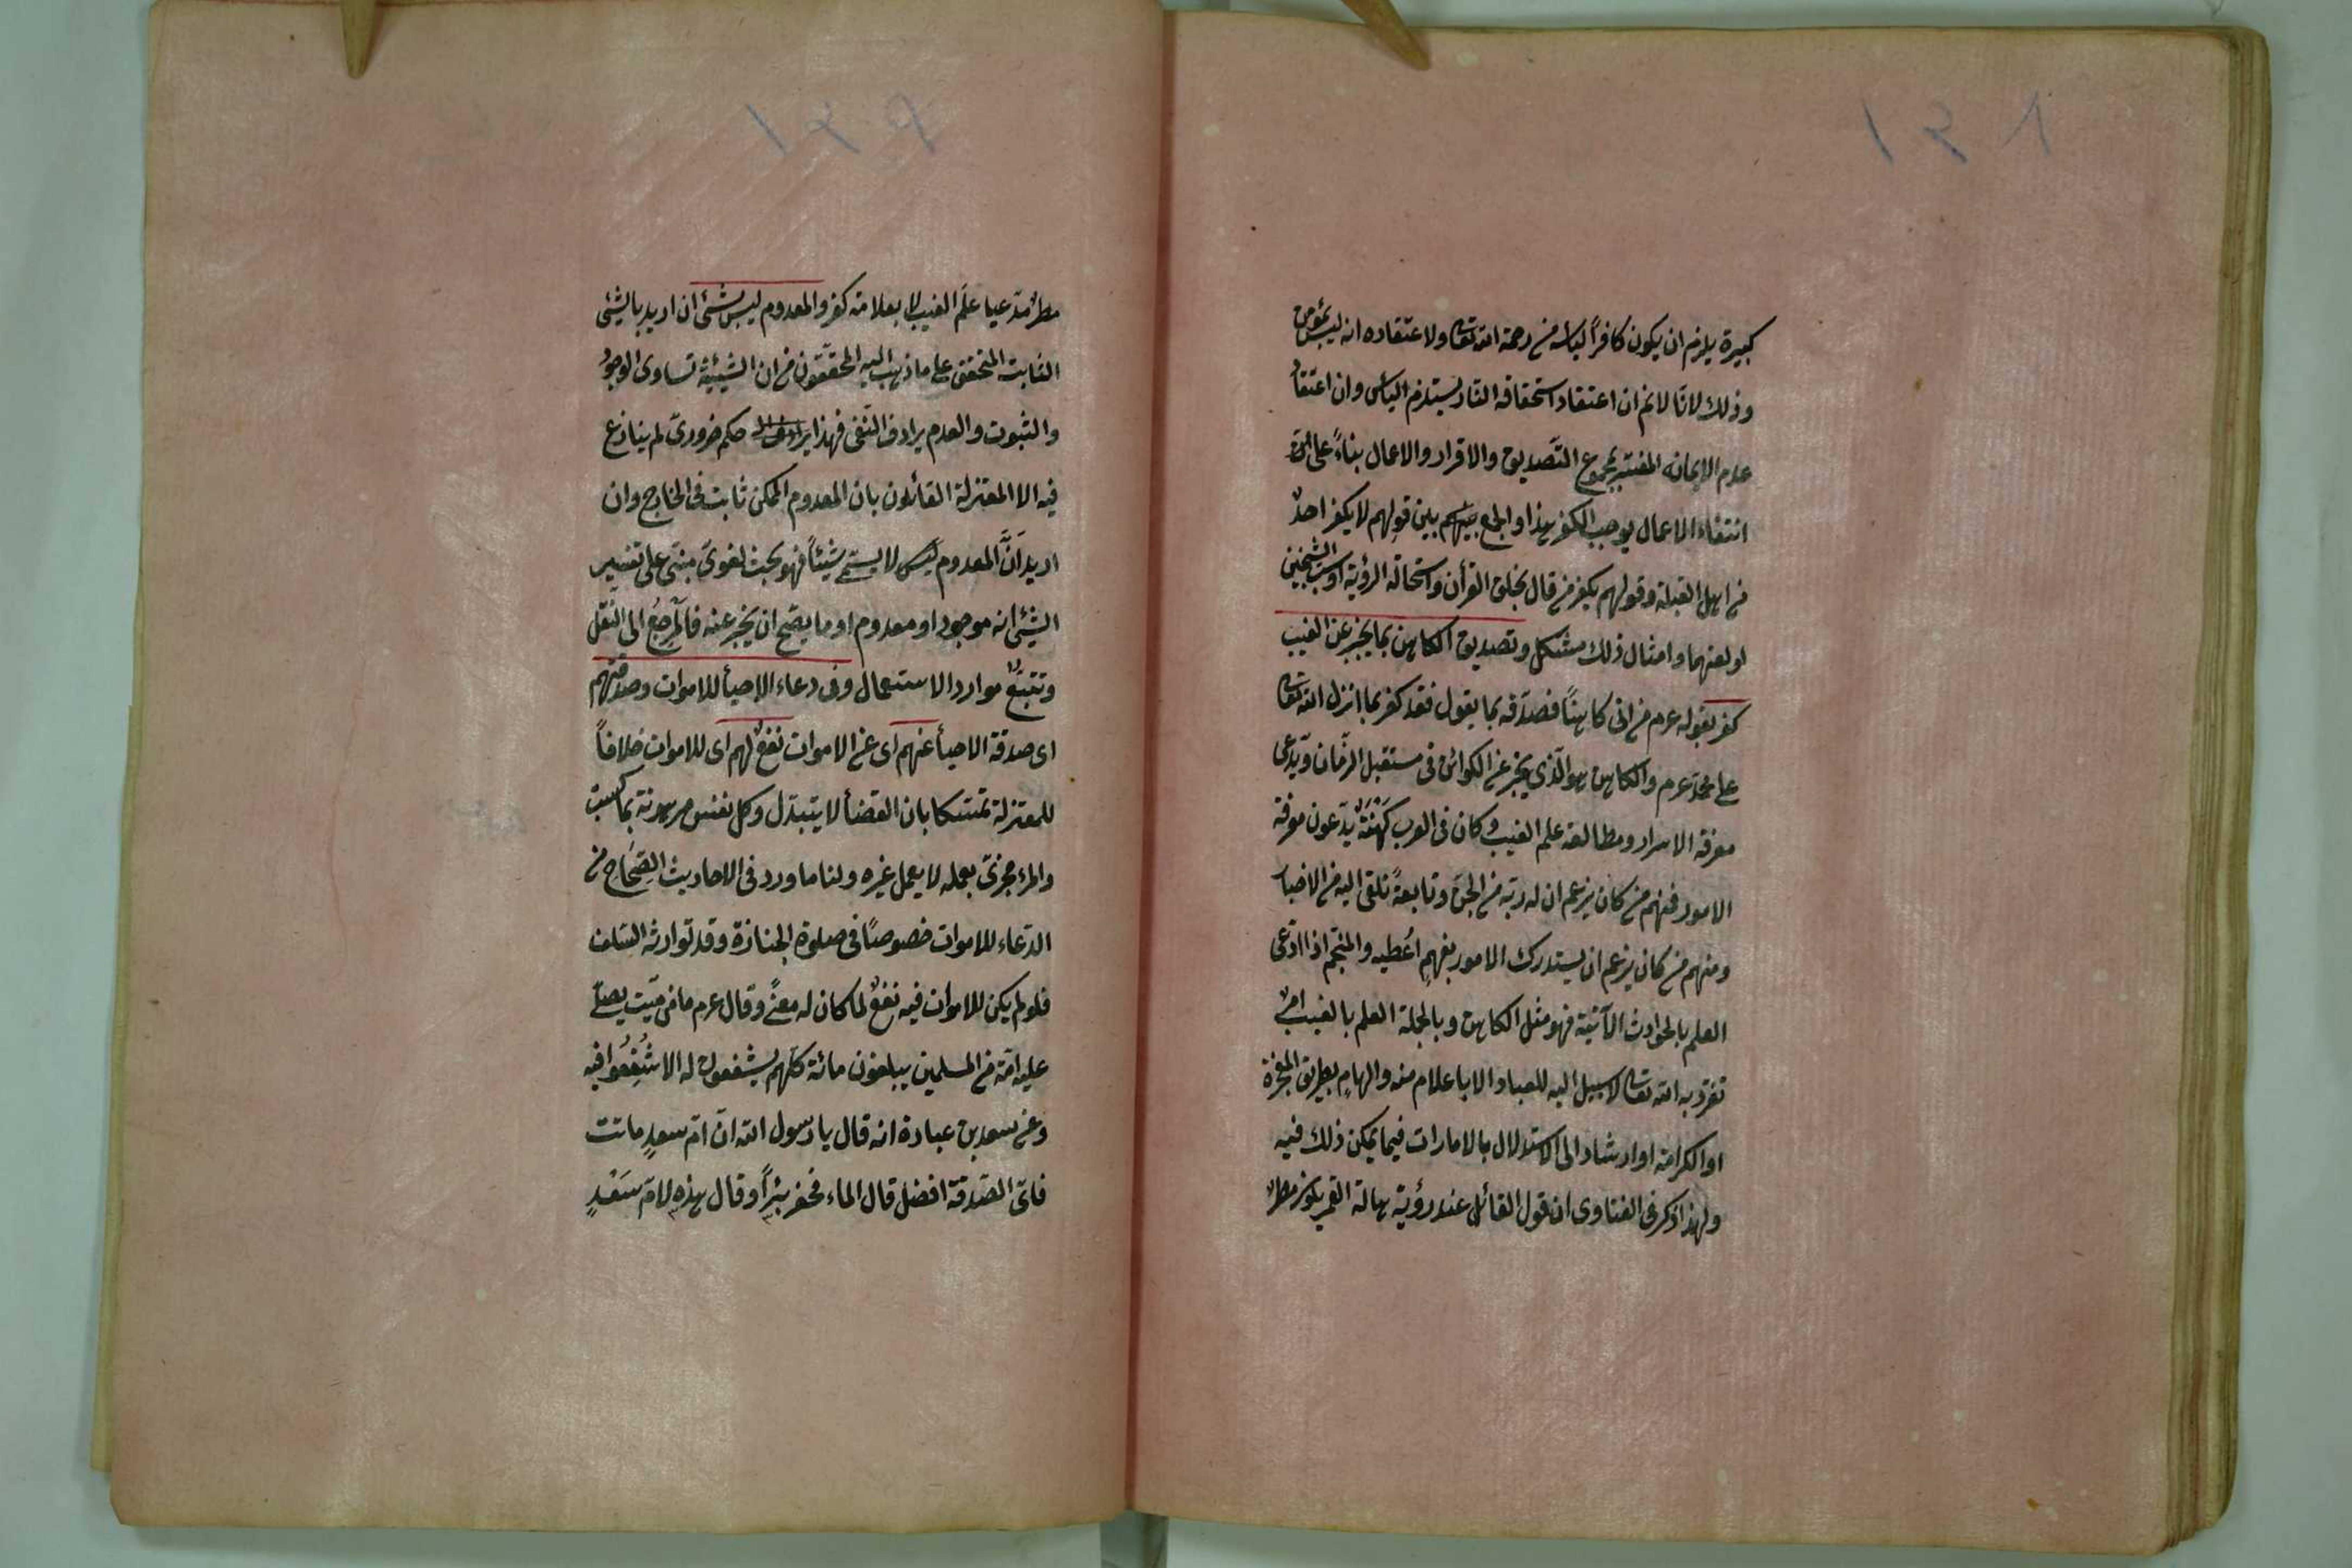 ١٣٨
كبيرة يلزم ان يكون كافراً ليأسه من رحمة الله تعالى ولاعتقاده انه ليس بمؤمن
وذلك لانا لانم ان اعتقاد استحقاقه النار يستلزم اليأس وان اعتقاد
عدم الايمانه المفسر بمجموع التصديق والاقرار والاعمال بناءً على ان
انتفاء الاعمال يوجب الكفر هذا والجمع بينهم بين قولهم لا يكفر احدٌ
من اهل القبلة وقولهم يكفر من قال بخلق القرأن واستحالة الرؤية اوسب الشيخين
او لعنهما وامثال ذلك مشكل وتصديق الكاهن بما يخبر عن الغيب
كفر لقوله عرم من اتى كاهناً فصدّقه بما يقول فقد كفر بما انزل الله تعالى
على محمد عرم والكاهن هو الّذي يخبر عن الكوائن في مستقبل الزّمان ويدّعى
معرفة الاسرار ومطالعة علم الغيب وكان في العرب كَهَنَةٌ يدّعون معرفة
الامور فمنهم من كان يزعم ان له رئيّة من الجنّ وتابعةً تلقى اليه من الاخبار
ومنهم من كان يزعم ان يستدرك الامور بفهمٍ اُعطيه والمنجّم اذا ادّعى
العلم بالحوادث الآتية فهو مثل الكاهن وبالجملة العلم بالغيب امرٌ
تفرّد به الله تعالى لا سبيل اليه للعباد الا باعلام منه والهامٍ بطريق المعجزة
او الكرامة او ارشاد الى الاستدلال بالامارات فيما يمكن ذلك فيه
ولهذا ذكر في الفتاوى ان قول القائل عند رؤية هالة القمر يكون مطرٌ
١٣٩
مطرٌ مدّعيا علم الغيب لا بعلامة كفر والمعدوم ليس بشئ ان اريد بالشئ
الثابت المتحقق على ما ذهب اليه المحققون من ان الشيئية تساوى الوجود
والثبوت والعدم يرادف النّفى فهذا حكم ضروريّ لم ينازع
فيه الا المعتزلة القائلون بان المعدوم الممكن ثابت في الخارج وان
اريد انّ المعدوم ليس لا يسمّى شيئاً فهو بحث لغويّ مبنيّ على تفسير
الشئ انه موجود او معدوم او ما يصح ان يخبر عنه فالمرجعُ الى النقل
وتتبّع موارد الاستعمال وفى دعاء الاحيأ للاموات وصدقتهم
اى صدقة الاحيأ عنهم اى عن الاموات نفعٌ لهم اى للاموات خلافاً
للمعتزلة تمسّكا بان القضأ لا يتبدّل وكل نفس مرهونة بما كسبت
والمرء مجزىّ بعمله لا بعمل غيره ولنا ما ورد في الاحاديث الصّحاح من
الدّعاء للاموات خصوصًا فى صلوة الجنازة وقد توارثه السّلف
فلو لم يكن للاموات فيه نفعٌ لما كان له معنًى وقال عرم ما من ميّت يصلّى
عليه امّة من المسلمين يبلغون مائة كلّهم يشفعون له الا شُفِّعُوا فيه
وعن سعد بن عبادة انه قال يا رسول الله انّ امّ سعدٍ ماتت
فاىّ الصّدقة افضل قال الماء فحفر بئراً وقال هذه لامّ سَعْدٍ